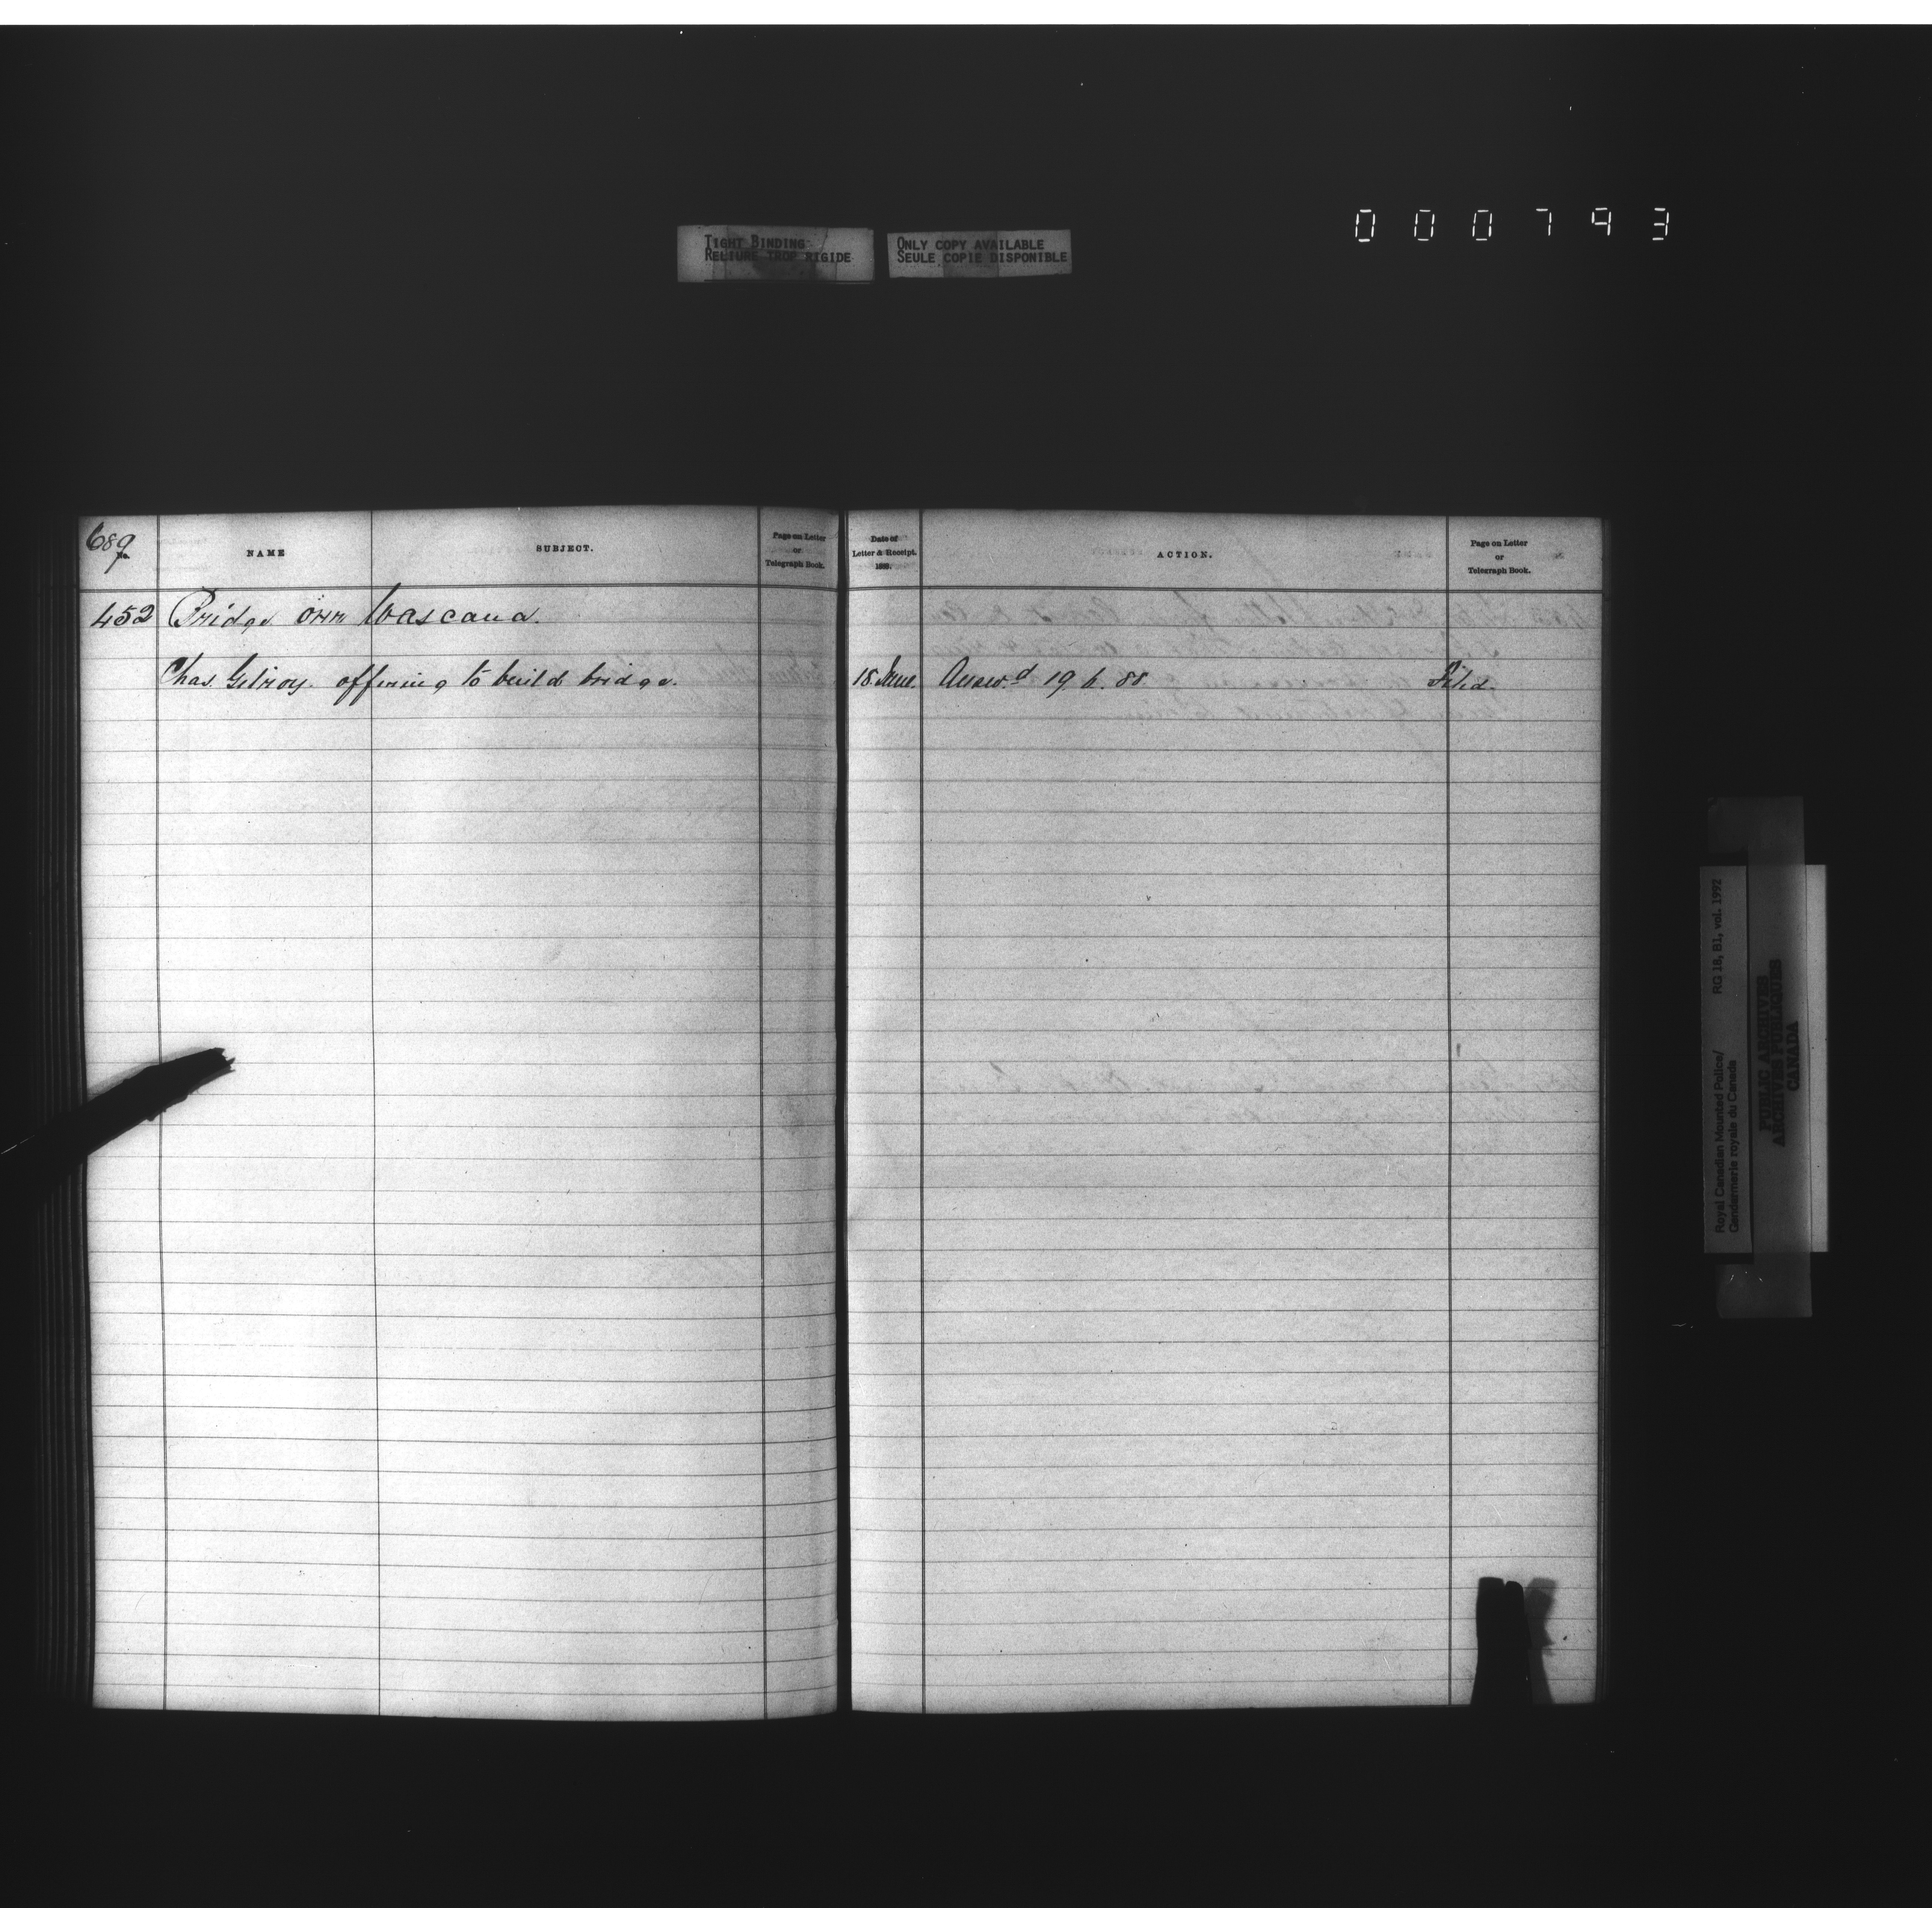 000793
TIGHT BINDING
RELIURE TROP RIGIDE
ONLY COPY AVAILABLE
SEULE COPIE DISPONIBLE
689
No.
NAME
SUBJECT.
Page on Letter
or
Telegraph Book.
Date of
Letter & Receipt.
188 .
ACTION.
Page on Letter
or
Telegraph Book.
452 Bridge over Wascana.
Chas. Gilroy. offering to build bridge. 18. June. Answ.d 19. 6. 88 Filed.
Royal Canadian Mounted Police/ RG 18, B1, vol. 1992
Gendarmerie royale du Canada
PUBLIC ARCHIVES
ARCHIVES PUBLIQUES
CANADA